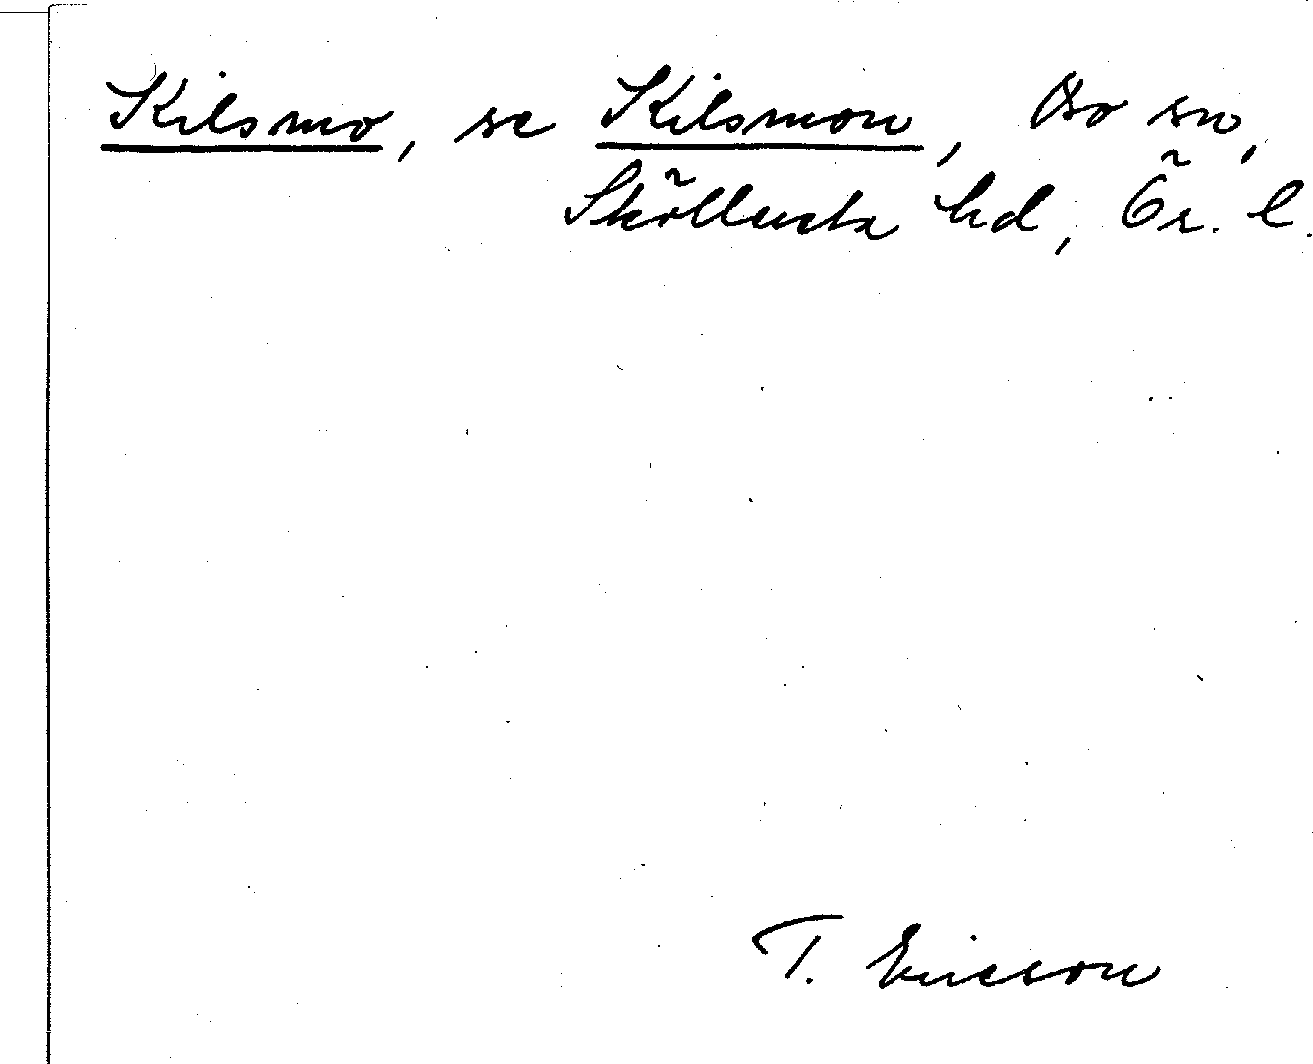 Kilsmo, se Kilsmon, Bo sn,
Sköllersta hd, Ör. l.
T. Ericson